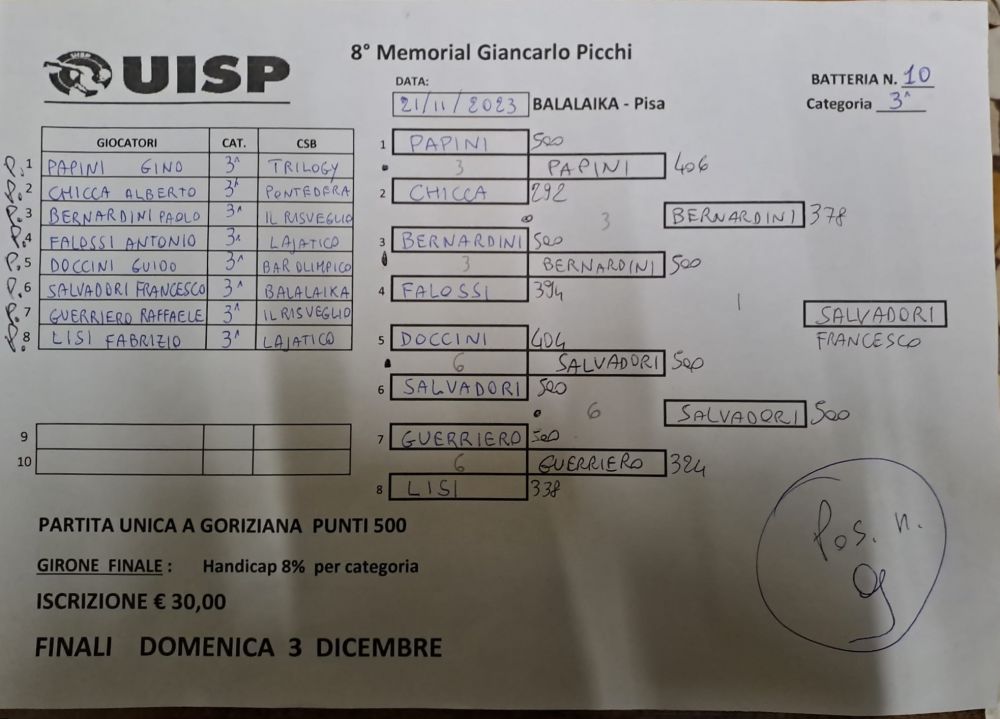 UISP
8° Memorial Giancarlo Picchi
DATA:
21/11/2023 BALALAIKA - Pisa
BATTERIA N. 10
Categoria 3^
GIOCATORI CAT. CSB
P. 1 PAPINI GINO 3^ TRILOGY
P. 2 CHICCA ALBERTO 3^ PONTEDERA
P. 3 BERNARDINI PAOLO 3^ IL RISVEGLIO
P. 4 FALOSSI ANTONIO 3^ LAJATICO
P. 5 DOCCINI GUIDO 3^ BAR OLIMPICO
P. 6 SALVADORI FRANCESCO 3^ BALALAIKA
P. 7 GUERRIERO RAFFAELE 3^ IL RISVEGLIO
P. 8 LISI FABRIZIO 3^ LAJATICO
9
10
1 PAPINI 500
3 PAPINI 406
2 CHICCA 292
3 BERNARDINI 378
3 BERNARDINI 500
3 BERNARDINI 500
4 FALOSSI 394
1 SALVADORI
FRANCESCO
5 DOCCINI 404
6 SALVADORI 500
6 SALVADORI 500
6 SALVADORI 500
7 GUERRIERO 500
6 GUERRIERO 324
8 LISI 338
PARTITA UNICA A GORIZIANA PUNTI 500
GIRONE FINALE : Handicap 8% per categoria
ISCRIZIONE € 30,00
FINALI DOMENICA 3 DICEMBRE
Pos. n.
9